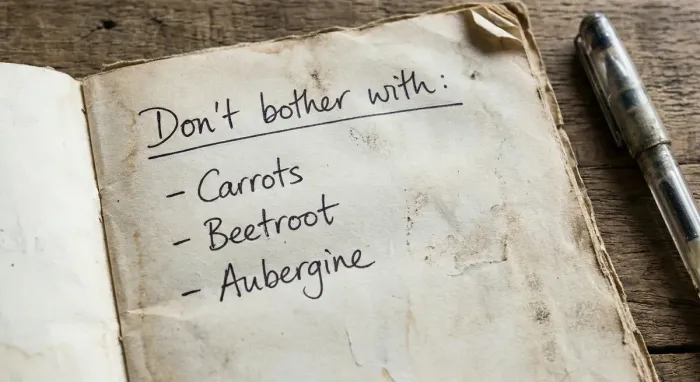 Don't bother with:
- Carrots
- Beetroot
- Aubergine